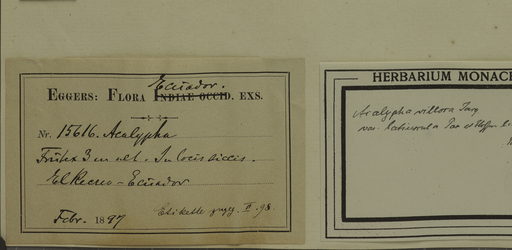 Ecuador.
EGGERS: FLORA INDIAE OCCID. EXS.
Nr. 15616. Acalypha
Frutex 3 m alt. In locis siccis.
El Recreo - Ecuador
Febr. 1897
Etikette II. 98.
HERBARIUM MONAC
Acalypha
var. Pax et Hoffm.